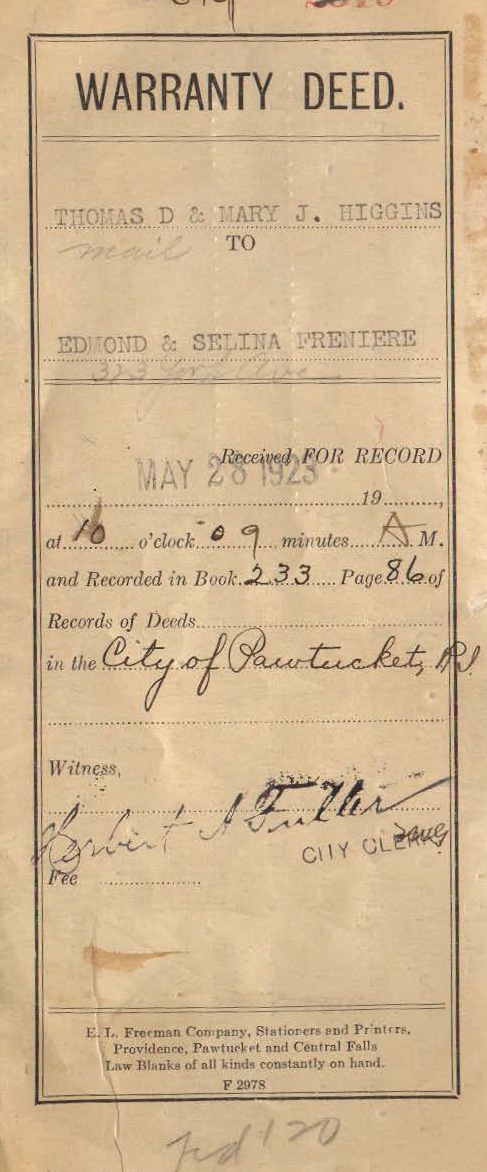 WARRANTY DEED.
THOMAS D & MARY J. HIGGINS
mail
TO
EDMOND & SELINA FRENIERE
323 York Ave
Received FOR RECORD
MAY 28 1923
19
at 10 o'clock 09 minutes A M.
and Recorded in Book 233 Page 86 of
Records of Deeds
in the City of Pawtucket, R.I.
Witness,
A Fuller
CITY CLERK
Fee
E. L. Freeman Company, Stationers and Printers,
Providence, Pawtucket and Central Falls
Law Blanks of all kinds constantly on hand.
F 2978
pd 120